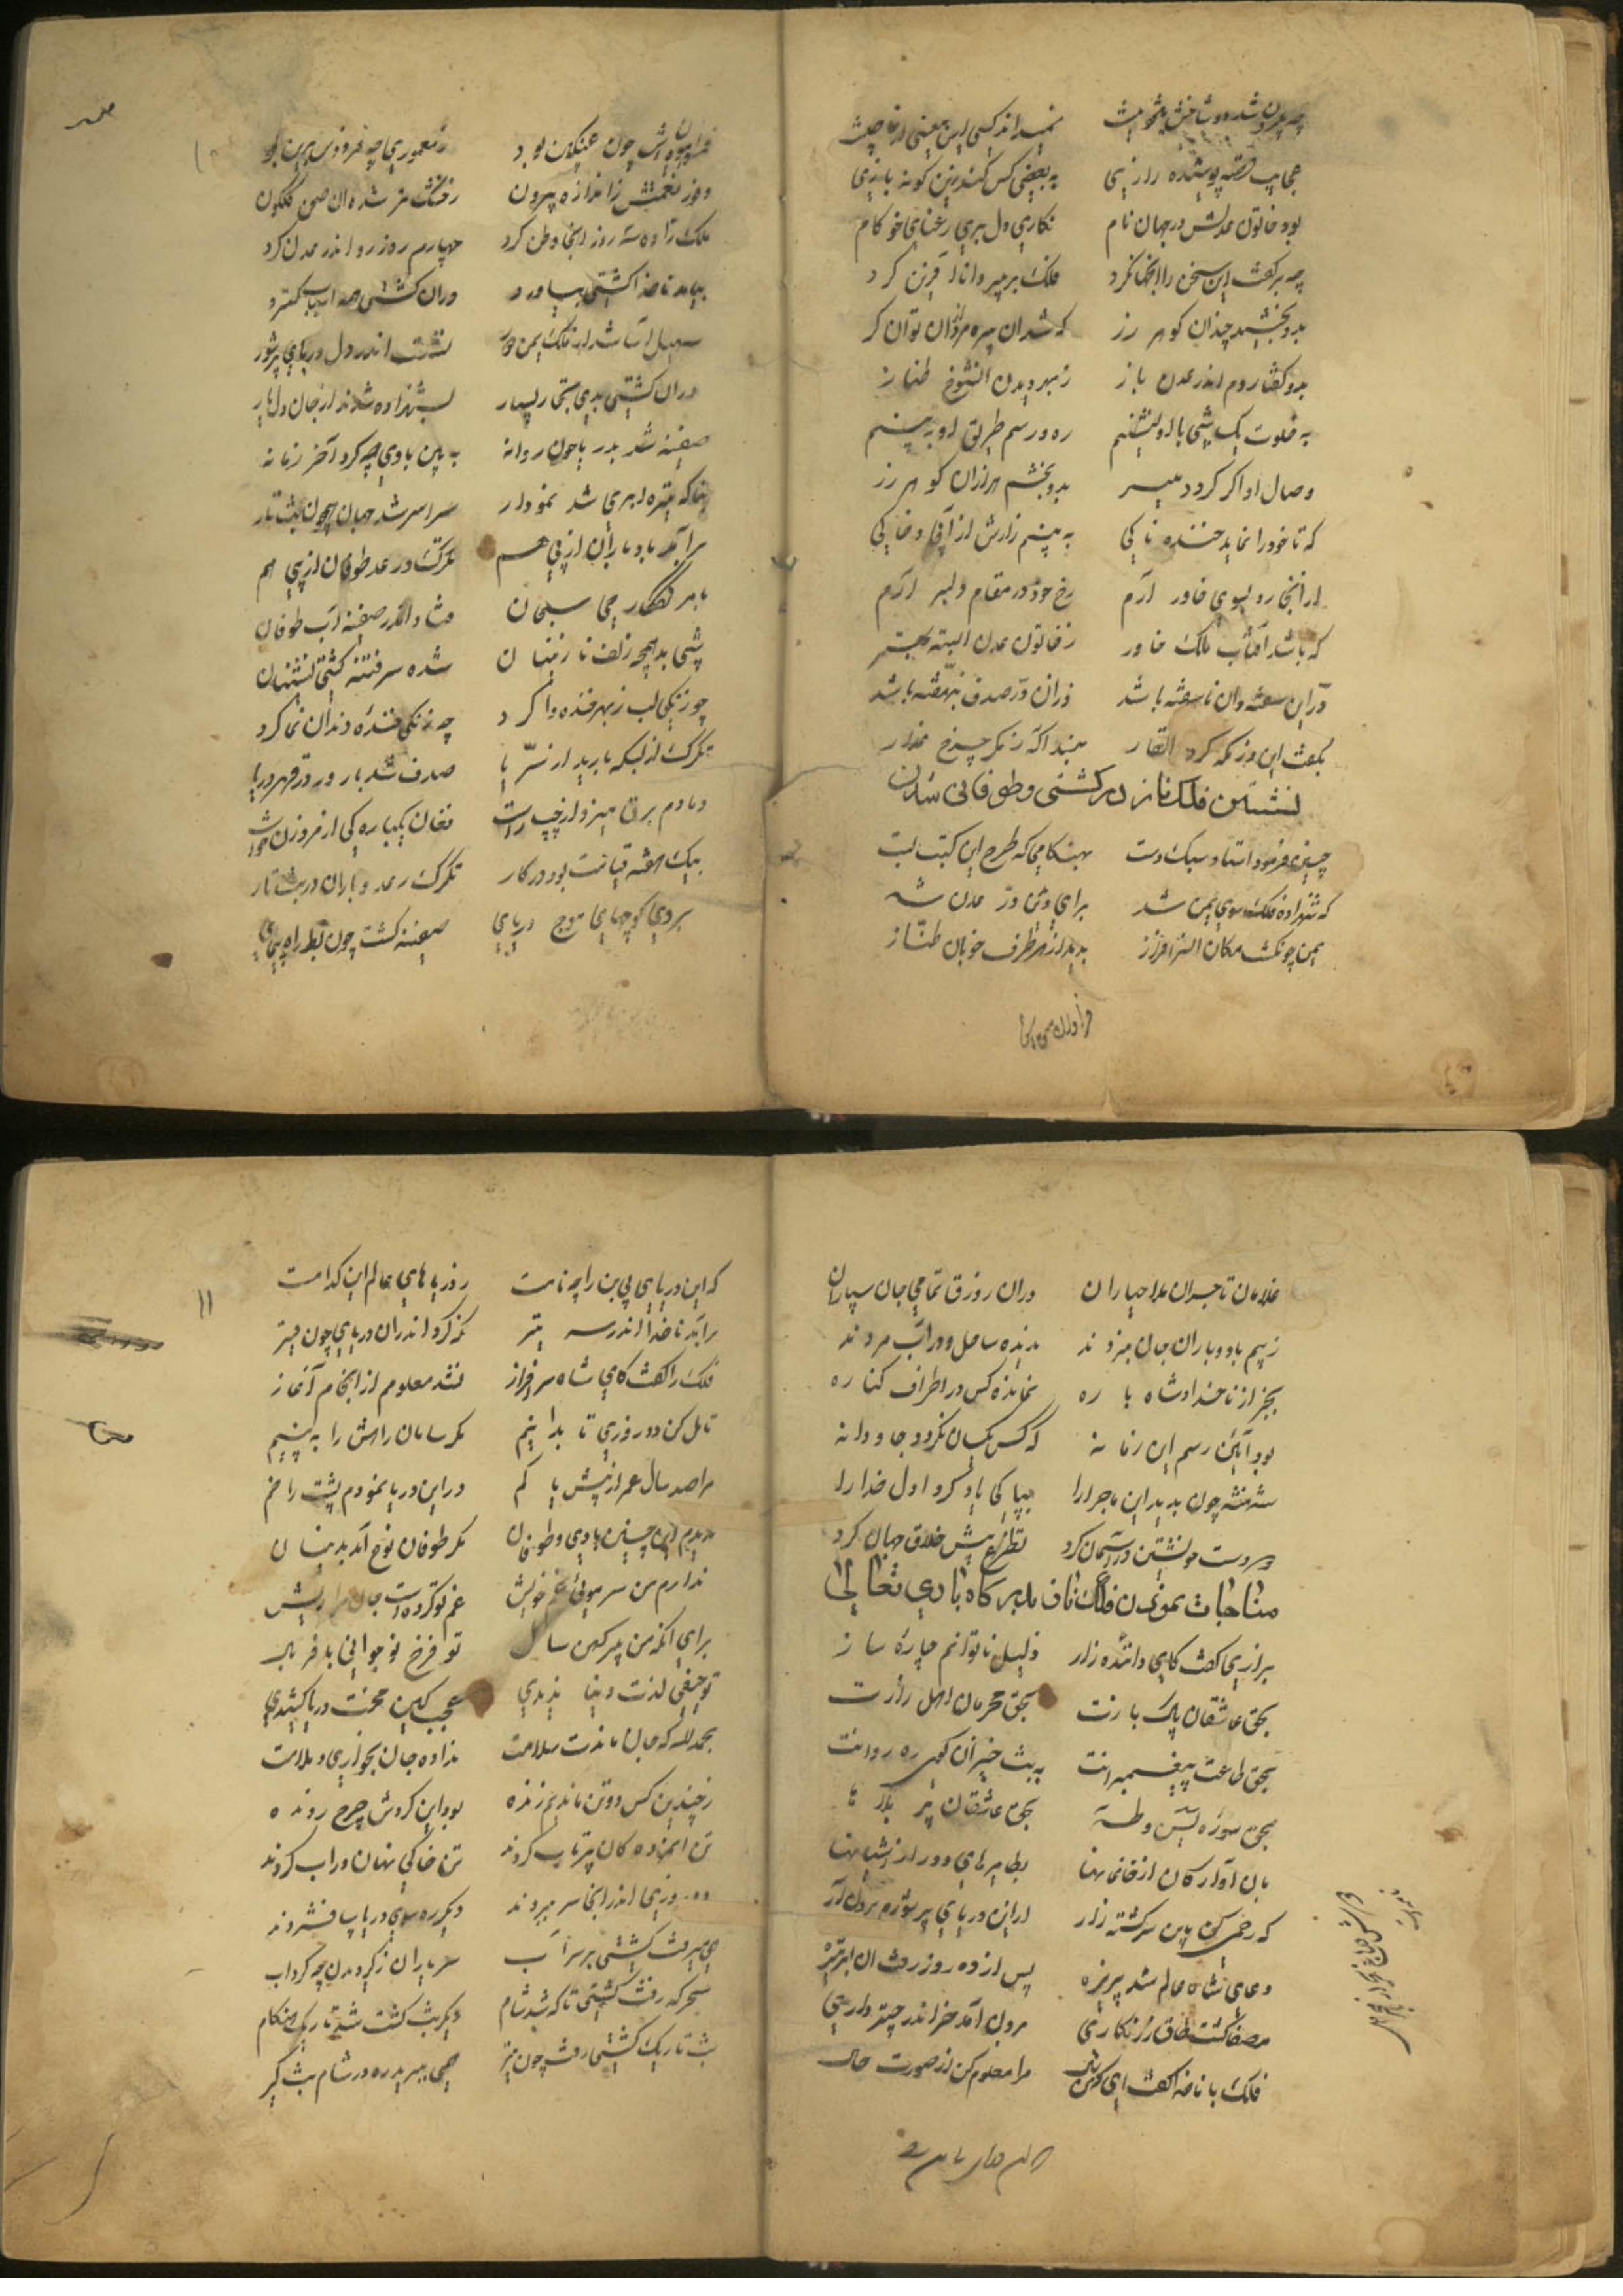 نمیداند کسی این معنی از
عجایب قصه پوشیده رازی به بعضی کس کند زین کونه بازی
بود خاتون عدلش در جهان نام نکاری دل بری رعنای خود کام
چه برکفت این سخن را انتها کرد فلک بر پیر دانا آفرین کرد
بدو بخشید چندان کوهر زر که شد آن پیره مرد آن توان کر
بدو کفتا روم اندر عدن باز ز بهر دیدن آنشوخ طناز
به خلوت یک شبی با او نشینم ره و رسم طریق او به بینم
وصال او اکر کردد میسر بدو بخشم هزاران کوهر زر
که تا خود را نماید خنده ناکی به بینم زارش از
از انجا رو بسوی خاور آرم رخ خود در مقام دلبر آرم
که باشد آفتاب ملک خاور ز خاتون عدن البته بهتر
در این سفته وان ناسفته باشد در صدف بنهفته باشد
بکفت این وز مکه کرد
نشستن فلک ناز در کشتی و طوفانی شدن
چنین فرمود استاد سبک دست بهنکامی که طرح این کتب بست
که شهزاده فلک سوی یمن شد برای در عدن شد
یمن چون کشت مکان بدید از هر طرف خوبان طناز
چون عنبکین بود ز معموری چه فردوس برین بود
وفور نعمتش ز اندازه بیرون ز شده ان صحن کلکون
ملک زاده سه روز انجا وطن کرد چهارم روز رو اندر عدن کرد
بیامد ناخدا کشتی بیاورد دران کشتی همه اسباب کسترد
سهیل آسا شد از ملک یمن دور نشست اندر دل دریای پرشور
دران کشتی بدی تجار بسیار بشهزاده شدند از جان و دل یار
صفینه شد بدریا چون روانه به بین با وی چه کرد آخر زمانه
بناکه تیره ابری شد نمودار سراسر شد جهان چون شب تار
برآمد باد باران از پی هم تکرک و رعد طوفان از پی هم
فتاد اندر صفینه آب طوفان
شبی بد همچه زلف نازنینان شده سرفتنه کشتی نشینان
چو زنکی لب ز بهر خنده وا کرد چه زنکی خنده دندان نما کرد
تکرک از بسکه بارید از ثریا صدف شد بارور در قعر دریا
دمادم برق میزد از چپ راست فغان یکباره کی از مرد زن خواست
بیک لحظه قیامت بود در کار تکرک رعد و باران در شب تار
بر وی کوچهای موج دریای صفینه کشت چون بط راه پیمای
غلامان تاجران ملاحیاران دران زورق تمامی جان سپاران
ز بیم باد و باران جان میزدند ندیده ساحل و در آب مردند
بجز از ناخدا و شاه باره نمانده کس در اطراف کناره
بود آئین رسم این زمانه که کس یکسان نکردد جاودانه
شهنشه چون بدید این ماجرا را بپاکی یاد کرد اول خدا را
دو دست خویشتن در آسمان کرد تظرع پیش خلاق جهان کرد
مناجات نمودن فلک ناز بدرکاه باری تعالی
بزاری کفت کای داننده راز ذلیل ناتوانم چاره ساز
بحق عاشقان پاک بازت بحق محرمان اهل رازت
بحق طاعت پیغمبرانت
بحق سوره یس و طه بحق عاشقان پر بلا ها
بان آوارکان از خانمانها بطایرهای دور از اشیانها
که رحمی کن باین سرکشته زار ازین دریای پر شورم برون آر
دعای شاه عالم شد پزیره پس از ده روز رفت ان ابر تیره
مصفا کشت طاق زرنکاری برون آمد خور اندر چتر داری
فلک با ناخدا کفت ای مرا معلوم کن از صورت حال
که این دریای بی بن را چه نامست ز دریاهای عالم این کدامست
برآمد ناخدا اندر سر تیر نکه کرد اندران دریای چون قیر
فلک را کفت کای شاه سرافراز نشد معلوم از انجام آغاز
تامل کن دو روزی تا بدانیم مکر سامان راهش را به بینیم
مرا صد سال عمر از بیش یا کم در این دریا نمودم پشت را خم
ندیدم این چنین بادی و طوفان مکر طوفان نوح آمد بدینسان
ندارم من سر موئی غم خویش غم تو کرده است جان مرا ریش
برای آنکه من پیر کهن سال تو فرخ نو جوانی با فر بال
تو حیفی لذت دنیا ندیدی عجب کین محنت دریا کشیدی
بحمدلله که جان ماندت سلامت نداده جان بخواری و ملامت
ز چندین کس دو تن ماندیم زنده بود این کردش چرخ رونده
تن خاکی نهان در آب کردند
روزی اندر انجا سر ببردند دیکر ره سوی دریا پا فشردند
همی میرفت کشتی بر سر آب
سحر که رفت کشتی تا که شد شام دیکر شب کشت شد تاریک هنکام
شب تاریک کشتی رفت چون تیر همی ببرید ره در شام شب کیر
۱۱